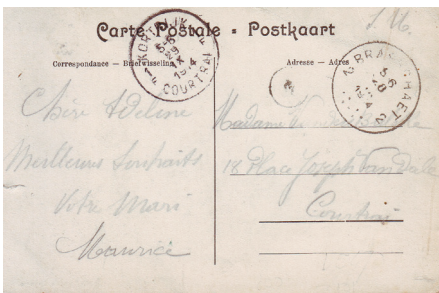 S.M.
Carte Postale - Postkaart
Correspondance — Briefwisseling
Adresse — Adres
KORTRIJK
1914
COURTRAI
BRASSCHAET
Chère Adeline
Meilleurs Souhaits
Votre Mari
Maurice
Madame
18 Place Joseph
Courtrai